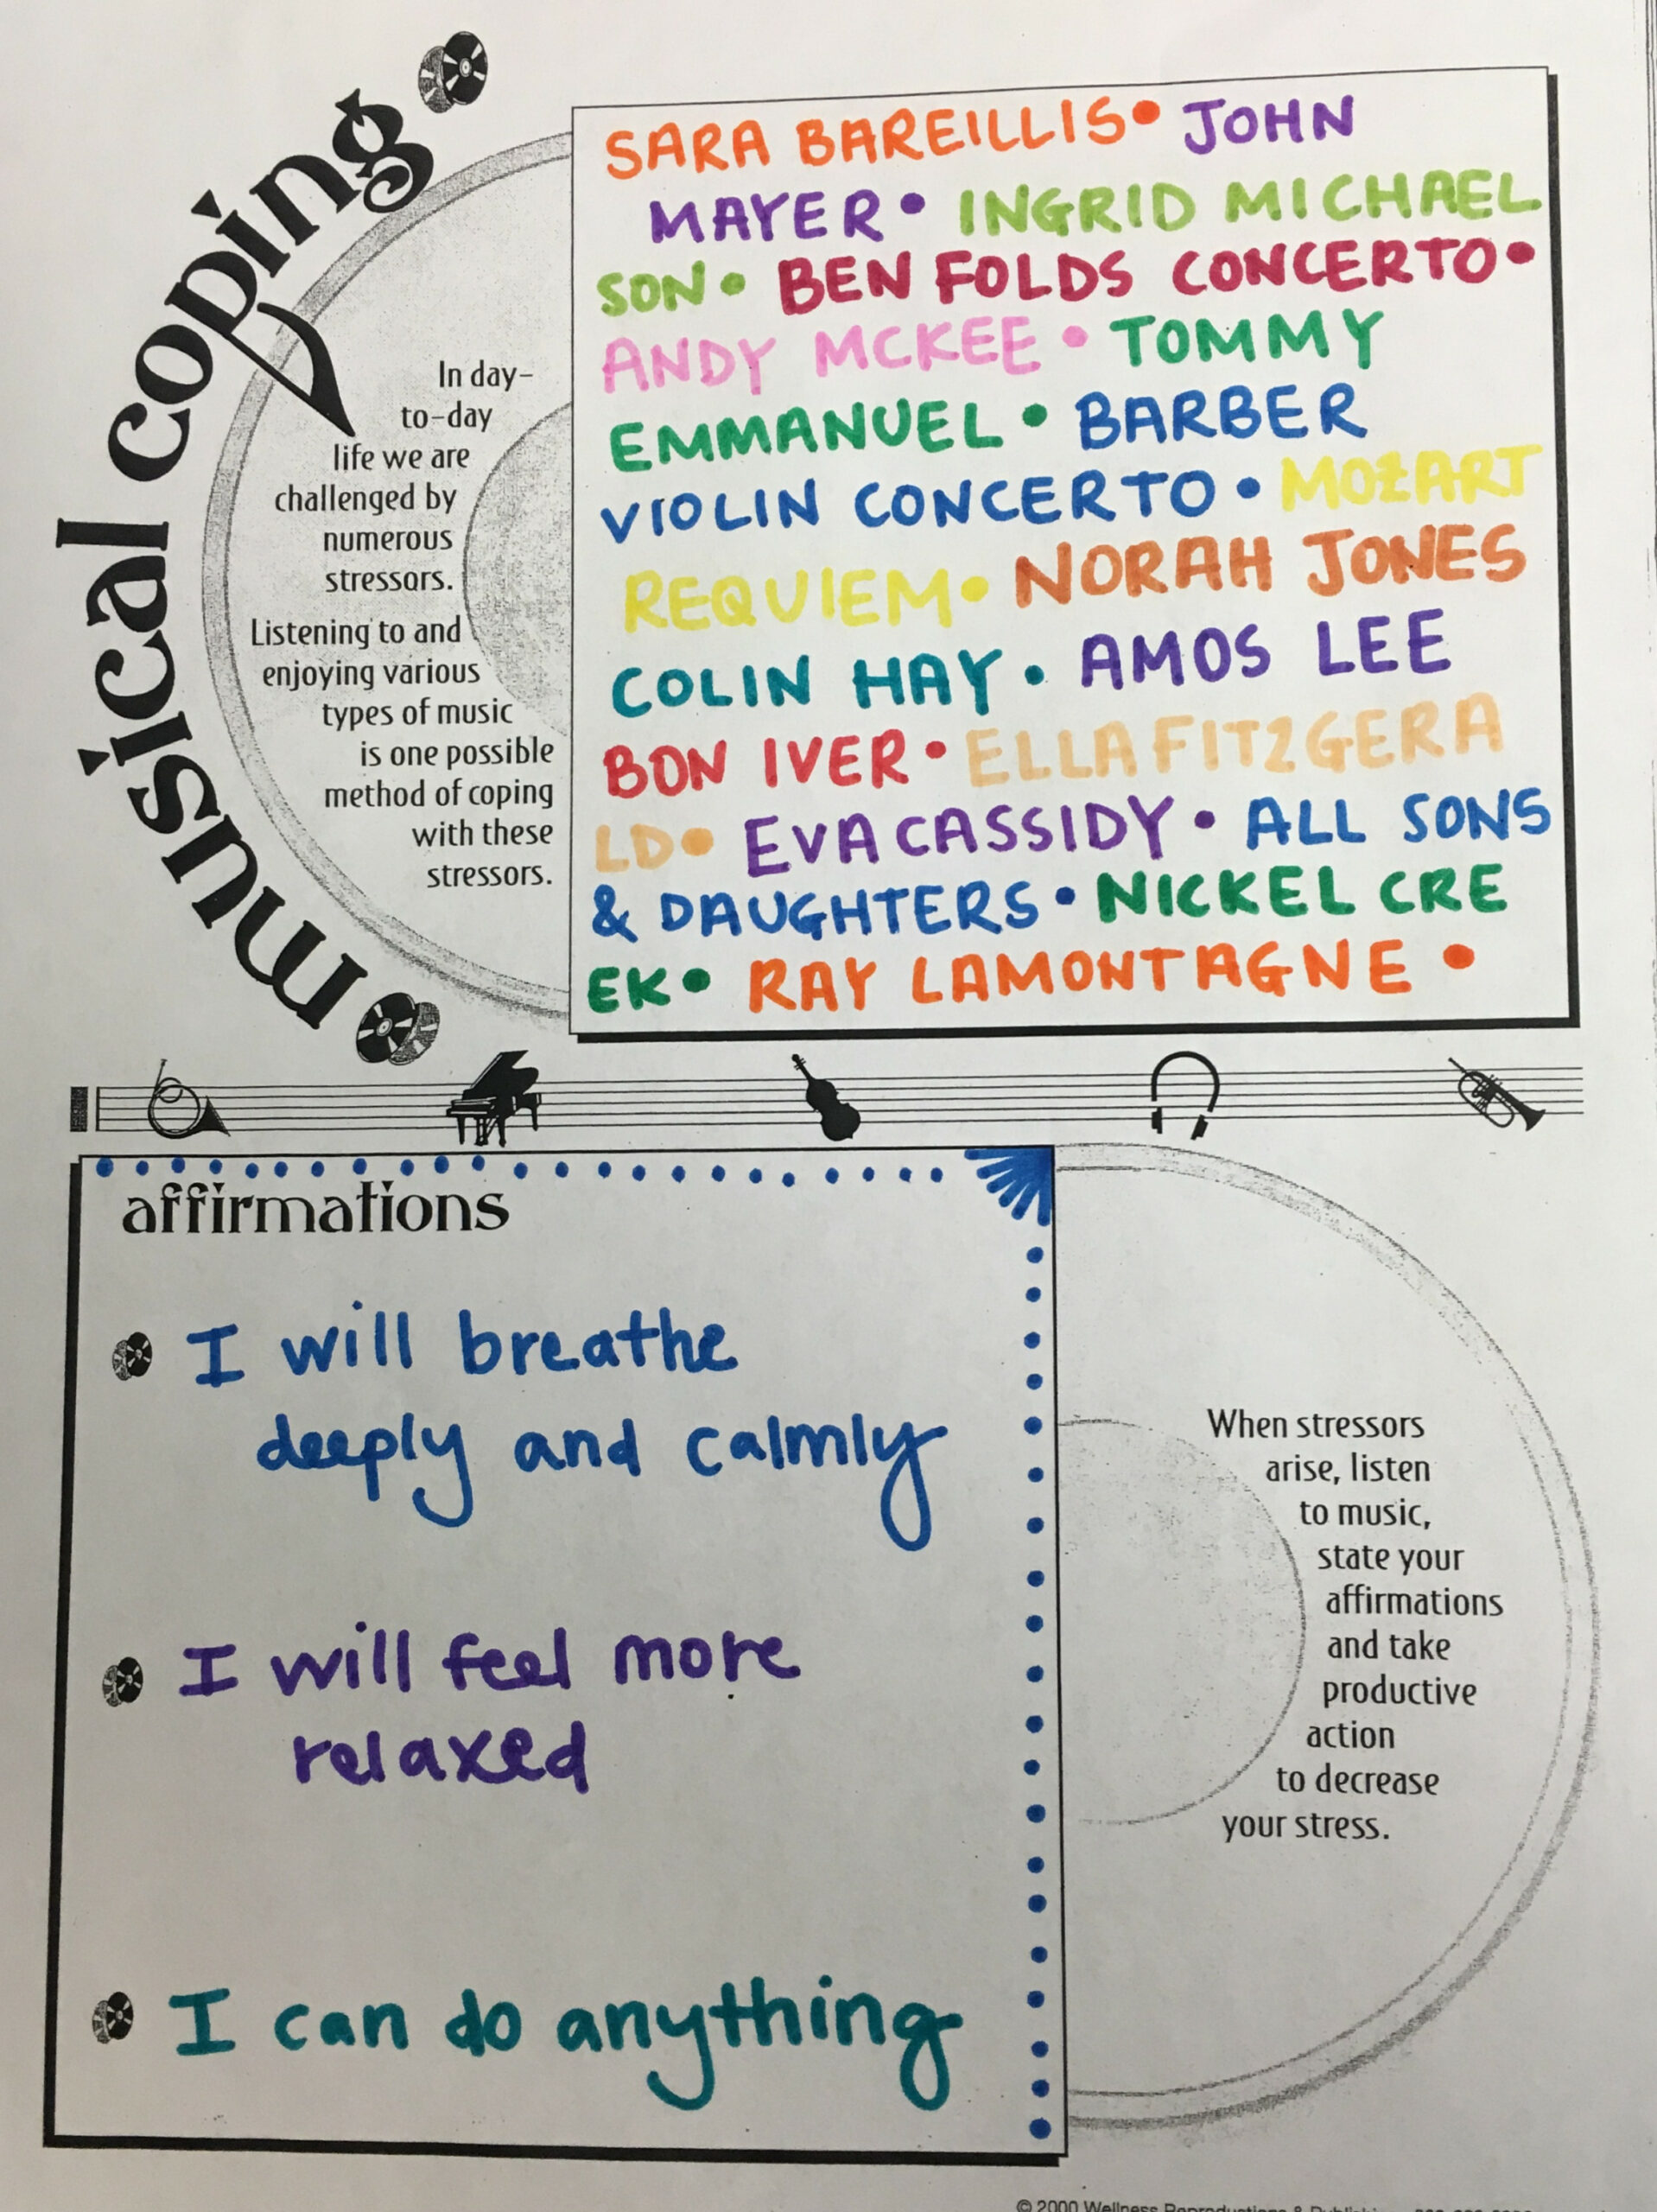 musical coping
In day-
to-day
life we are
challenged by
numerous
stressors.
Listening to and
enjoying various
types of music
is one possible
method of coping
with these
stressors.
SARA BAREILLIS • JOHN
MAYER • INGRID MICHAEL
SON • BEN FOLDS CONCERTO •
ANDY MCKEE • TOMMY
EMMANUEL • BARBER
VIOLIN CONCERTO • MOZART
REQUIEM • NORAH JONES
COLIN HAY • AMOS LEE
BON IVER • ELLA FITZGERA
LD • EVA CASSIDY • ALL SONS
& DAUGHTERS • NICKEL CRE
EK • RAY LAMONTAGNE •
affirmations
I will breathe
deeply and calmly
I will feel more
relaxed
I can do anything
When stressors
arise, listen
to music,
state your
affirmations
and take
productive
action
to decrease
your stress.
© 2000 Wellness Reproductions &